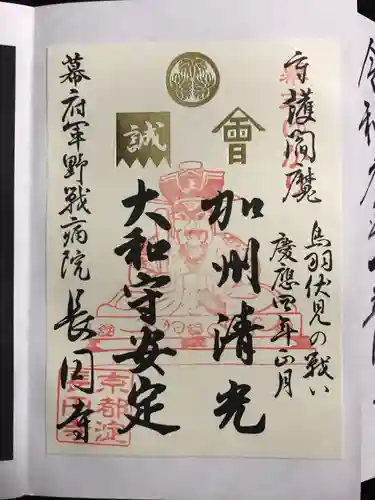 守護閻魔
鳥羽伏見の戦い
慶應四年正月
會
加州清光
誠
大和守安定
幕府軍野戦病院
長円寺
京都淀
長円寺
令和